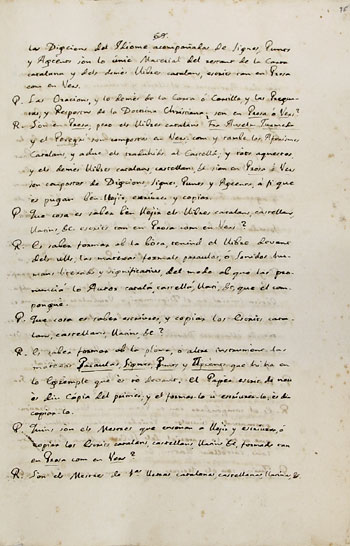 las Diccions del Idiome acompañadas de Signes, Punts
y Accents son lo únic Material del restant de la Causa
catalana y dels demés Llibres catalans, escrits tan en Prosa
com en Vers.
P. Las Oracions, y lo demés de la ó Cartilla y las Pregun-
tas, y Respostas de la Doctrina Christiana, son en Prosa ó Vers?
R. Son en Prosa, pero els Llibres catalans Fra Anselm Turmeda
y el Perequi son compostos en Vers, com y també los Aforismes
Catalans, y aduc els traduhits al Castellá, y tots aquestos
y els demés Llibres catalans, castellans, &c. sian en Prosa ó Vers
son compostos de Diccions, Signes, Punts y Accents, á fi que
es pugan ben llegir, escriurer y copiar.
P. Que cosa es saber ben llegir els Llibres catalans, castellans
llatins, &c. escrits tan en Prosa com en Vers?
R. Es saber formar ab la boca, tenint el Llibre devant
dels ulls, las mateixas formals paraulas, ó Sonidos hu-
mans literads y significatius, del modo ab que las pro-
nunciá lo Autor catalá, castellá, llatí, &c. que el com-
pongué.
P. Que cosa es saber escriurer, y copiar los Escrits cata-
lans, castellans llatins &c?
R. Es saber formar ab la ploma, ó altre instrument las
mateixas Paraulas, Signes, Punts y Accents que hi ha en
lo Exemplar que es té devant; el Paper escrit de nou
es diu Copia del primer, y el formarlo ó escriurerlo, es diu
copiar-lo.
P. Quins son els Mestres que ensenan a llegir y escriurer, ó
copiar los Escrits catalans, castellans llatins &c. formats tan
en Prosa com en Vers?
R. Son els Mestres de lletras catalanas, castellanas, llatinas &c.